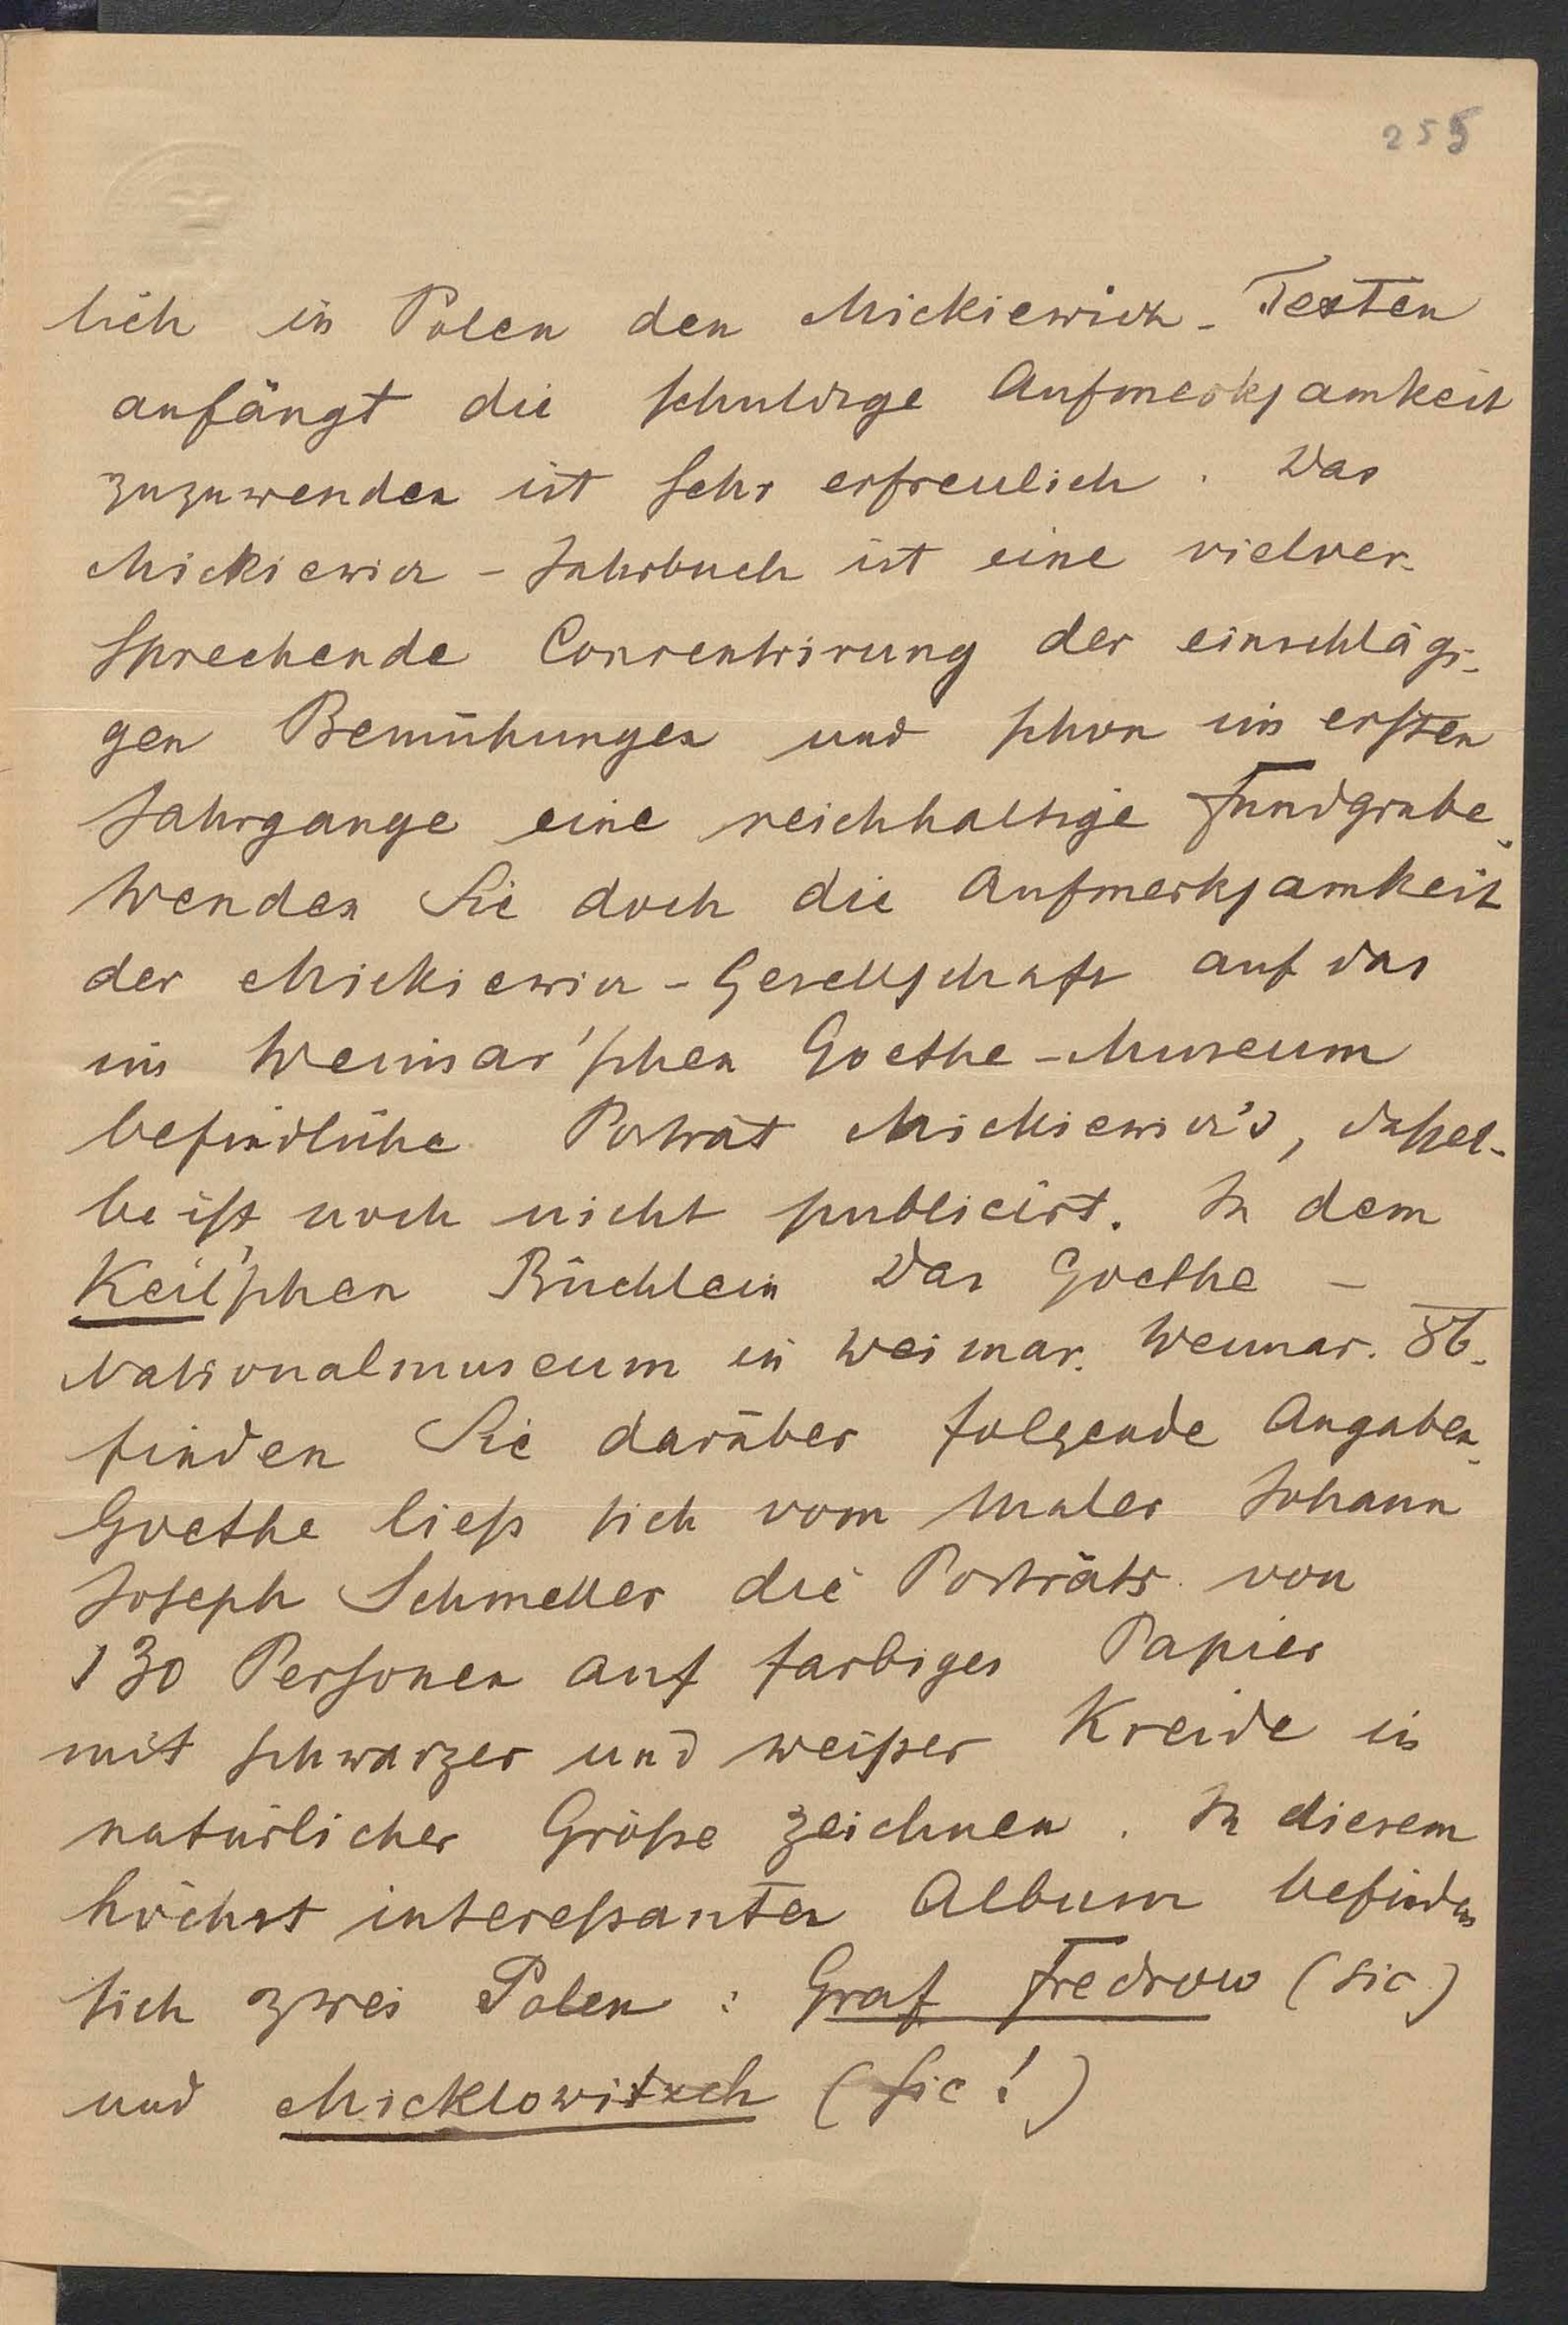 255
lich in Polen den Mickiewicz-Texten
anfängt die schuldige Aufmerksamkeit
zuzuwenden ist sehr erfreulich. Das
Mickiewicz-Jahrbuch ist eine vielver-
sprechende Concentrirung der einschlägi-
gen Bemühungen und schon im ersten
Jahrgange eine reichhaltige Fundgrube.
Wenden Sie doch die Aufmerksamkeit
der Mickiewicz-Gesellschaft auf das
im Weimar'schen Goethe-Museum
befindliche Porträt Mickiewicz's, dassel-
be ist noch nicht publicirt. In dem
Keil'schen Büchlein Das Goethe-
Nationalmuseum in Weimar. Weimar. 86.
finden Sie darüber folgende Angaben.
Goethe ließ sich vom Maler Johann
Joseph Schmeller die Porträts von
130 Personen auf farbiges Papier
mit schwarzer und weißer Kreide in
natürlicher Größe zeichnen. In diesem
höchst interessanten Album befinden
sich zwei Polen: Graf Fredrow (sic)
und Micklowitzch (sic!)